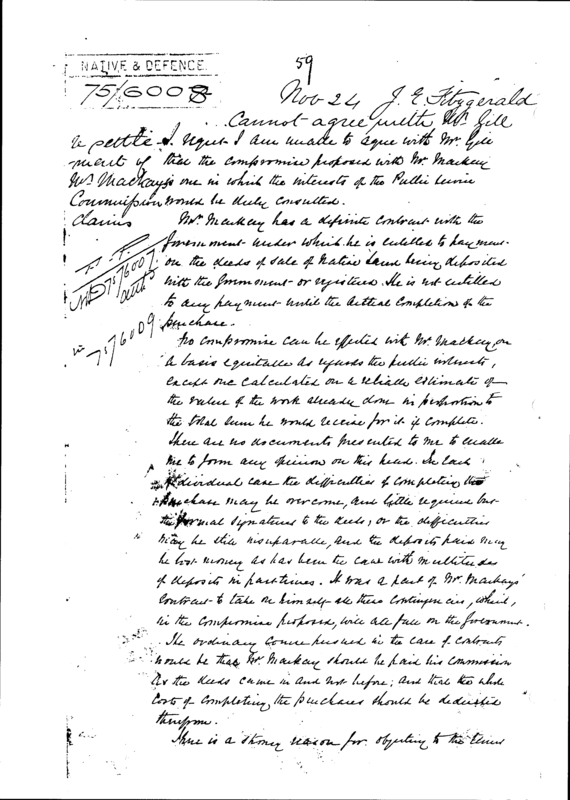 59
NATIVE & DEFENCE.
75/6008
Nov 24 J. E. Fitzgerald
Cannot agree with Mr. Gill
re settle-
ment of
Mr Mackay's
Commission
claims
I regret I am unable to agree with Mr. Gill
that the compromise proposed with Mr. Mackay
is one in which the interests of the Public Service
would be duly consulted.
Mr. Mackay has a definite contract with the
Government under which he is entitled to payment
on the deeds of sale of Native Land being deposited
with the Government or registered. He is not entitled
to any payment until the actual completion of the
purchase.
75/6007
75/6009
No compromise can be effected with Mr. Mackay, on
a basis equitable as regards the public interests,
except one calculated on a reliable estimate of
the value of the work already done in proportion to
the total sum he would receive for it if complete.
There are no documents presented to me to enable
me to form any opinion on this head. In each
individual case the difficulties of completing the
purchase may be overcome, and little required but
the formal signatures to the deeds; or the difficulties
may be still insuperable, and the deposits paid may
be lost money as has been the case with multitudes
of deposits in past times. It was a part of Mr. Mackay's
contract to take on himself all these contingencies, which,
in the compromise proposed, will all fall on the Government.
The ordinary course pursued in the case of contracts
would be that Mr. Mackay should be paid his commission
as the deeds came in and not before; and that the whole
costs of completing the purchases should be deducted
therefrom.
There is a strong reason for objecting to the terms